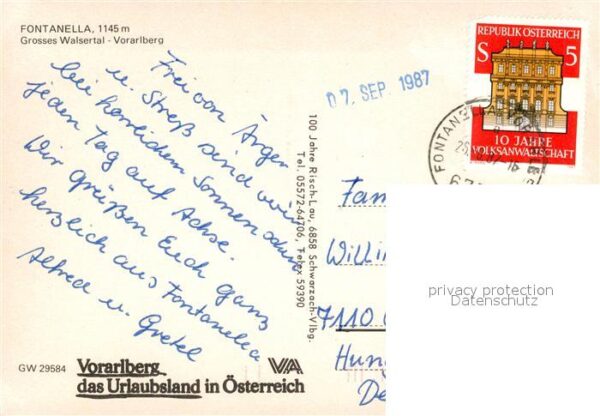 FONTANELLA, 1145 m
Grosses Walsertal - Vorarlberg
Frei von Ärger
u. Streß sind wir
bei herrlichem Sonnenschein
jeden Tag auf Achse.
Wir grüßen Euch ganz
herzlich aus Fontanella
Alfred u. Gretel
GW 29584
Vorarlberg
das Urlaubsland in Österreich
VA
100 Jahre Risch-Lau, 6858 Schwarzach-Vlbg.
Tel. 05572-64706, Telex 59390
07. SEP. 1987
REPUBLIK ÖSTERREICH
S 5
10 JAHRE
VOLKSANWALTSCHAFT
FONTAN
Fam
Willi
7110
Hun
De
privacy protection
Datenschutz